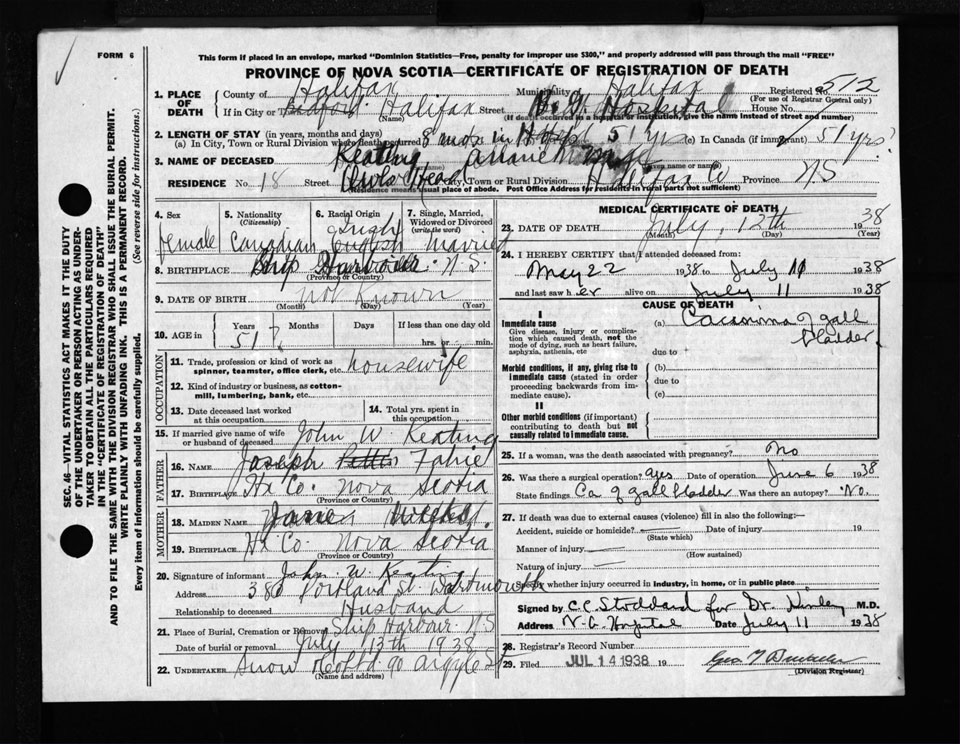 FORM 6
This form if placed in an envelope, marked "Dominion Statistics—Free, penalty for improper use $300," and properly addressed will pass through the mail "FREE"
PROVINCE OF NOVA SCOTIA—CERTIFICATE OF REGISTRATION OF DEATH
1. PLACE OF DEATH County of Halifax Municipality Halifax Registered No. 512
(For use of Registrar General only)
If in City or Halifax Street Hospital House No.
(Name) (If death occurred in a hospital or institution give the name instead of street and number)
2. LENGTH OF STAY (in years, months and days)
(a) In City, Town or Rural Division where death occurred 51 yrs (c) In Canada (if immigrant) 51 yrs?
3. NAME OF DECEASED Keating,
RESIDENCE No. 18 Street Owls Head City, Town or Rural Division Halifax Co Province N.S
(Residence means usual place of abode. Post Office Address for residents in rural parts not sufficient)
4. Sex female
5. Nationality (Citizenship) Canadian
6. Racial Origin Irish English
7. Single, Married, Widowed or Divorced (write the word) Married
8. BIRTHPLACE Ship Harbour N.S.
(Province or Country)
9. DATE OF BIRTH not Known
(Month) (Day) (Year)
10. AGE in Years 51 Months Days If less than one day old hrs. or min.
OCCUPATION
11. Trade, profession or kind of work as spinner, teamster, office clerk, etc. housewife
12. Kind of industry or business, as cotton-mill, lumbering, bank, etc.
13. Date deceased last worked at this occupation
14. Total yrs. spent in this occupation
15. If married give name of wife or husband of deceased John W. Keating
FATHER
16. NAME Joseph Fahie
17. BIRTHPLACE Hx Co. Nova Scotia
(Province or Country)
MOTHER
18. MAIDEN NAME Jane
19. BIRTHPLACE Hx Co. Nova Scotia
(Province or Country)
20. Signature of informant John W. Keating
Address 380 Portland St. Dartmouth
Relationship to deceased Husband
21. Place of Burial, Cremation or Removal Ship Harbour N.S
Date of burial or removal July 13th 1938
22. UNDERTAKER Snow & Co Ltd 90 Argyle St
(Name and address)
MEDICAL CERTIFICATE OF DEATH
23. DATE OF DEATH July, 12th 1938
(Month) (Day) (Year)
24. I HEREBY CERTIFY that I attended deceased from:
May 22 1938 to July 11 1938
and last saw her alive on July 11 1938
CAUSE OF DEATH
I
Immediate cause
Give disease, injury or complication which caused death, not the mode of dying, such as heart failure, asphyxia, asthenia, etc
(a) Carcinoma of gall bladder.
due to
Morbid conditions, if any, giving rise to immediate cause (stated in order proceeding backwards from immediate cause).
(b)
due to
(c)
II
Other morbid conditions (if important) contributing to death but not causally related to immediate cause.
25. If a woman, was the death associated with pregnancy? No
26. Was there a surgical operation? yes Date of operation June 6 1938
State findings Ca of gall bladder Was there an autopsy? No.
27. If death was due to external causes (violence) fill in also the following:—
Accident, suicide or homicide? Date of injury 19
(State which)
Manner of injury
(How sustained)
Nature of injury
Specify whether injury occurred in industry, in home, or in public place
Signed by C.C. Stoddard for Dr. M.D.
Address V.G. Hospital Date July 11 1938
28. Registrar's Record Number
29. Filed JUL 14 1938 19
(Division Registrar)
SEC. 46—VITAL STATISTICS ACT MAKES IT THE DUTY OF THE UNDERTAKER OR PERSON ACTING AS UNDERTAKER TO OBTAIN ALL THE PARTICULARS REQUIRED IN THE "CERTIFICATE OF REGISTRATION OF DEATH" AND TO FILE THE SAME WITH THE DIVISION REGISTRAR WHO SHALL ISSUE THE BURIAL PERMIT.
WRITE PLAINLY WITH UNFADING INK. THIS IS A PERMANENT RECORD.
Every item of information should be carefully supplied. (See reverse side for instructions.)